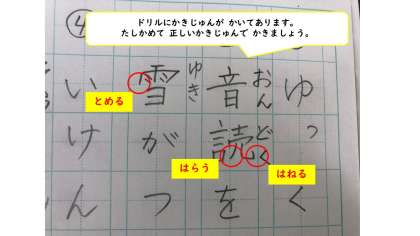 ドリルにかきじゅんが かいてあります。
たしかめて 正しいかきじゅんで かきましょう。
④
ゆっく
おんどく
音読を
ゆき
雪がつ
いけん
とめる
はらう
はねる